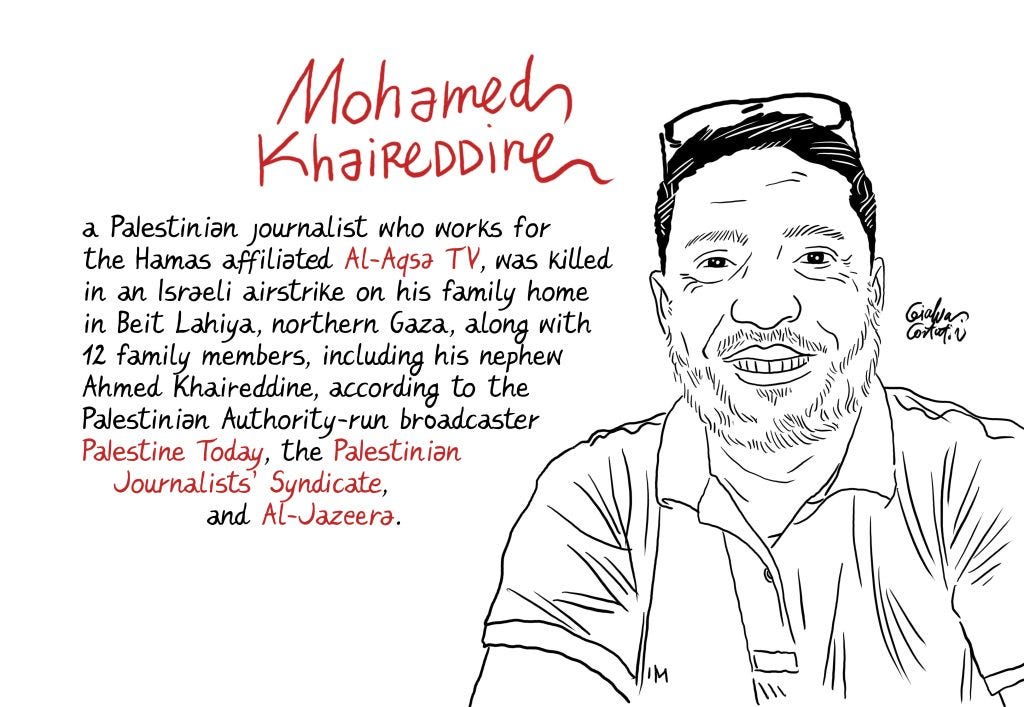 Mohamed
Khaireddine
a Palestinian journalist who works for
the Hamas affiliated Al-Aqsa TV, was killed
in an Israeli airstrike on his family home
in Beit Lahiya, northern Gaza, along with
12 family members, including his nephew
Ahmed Khaireddine, according to the
Palestinian Authority-run broadcaster
Palestine Today, the Palestinian
Journalists' Syndicate,
and Al-Jazeera.